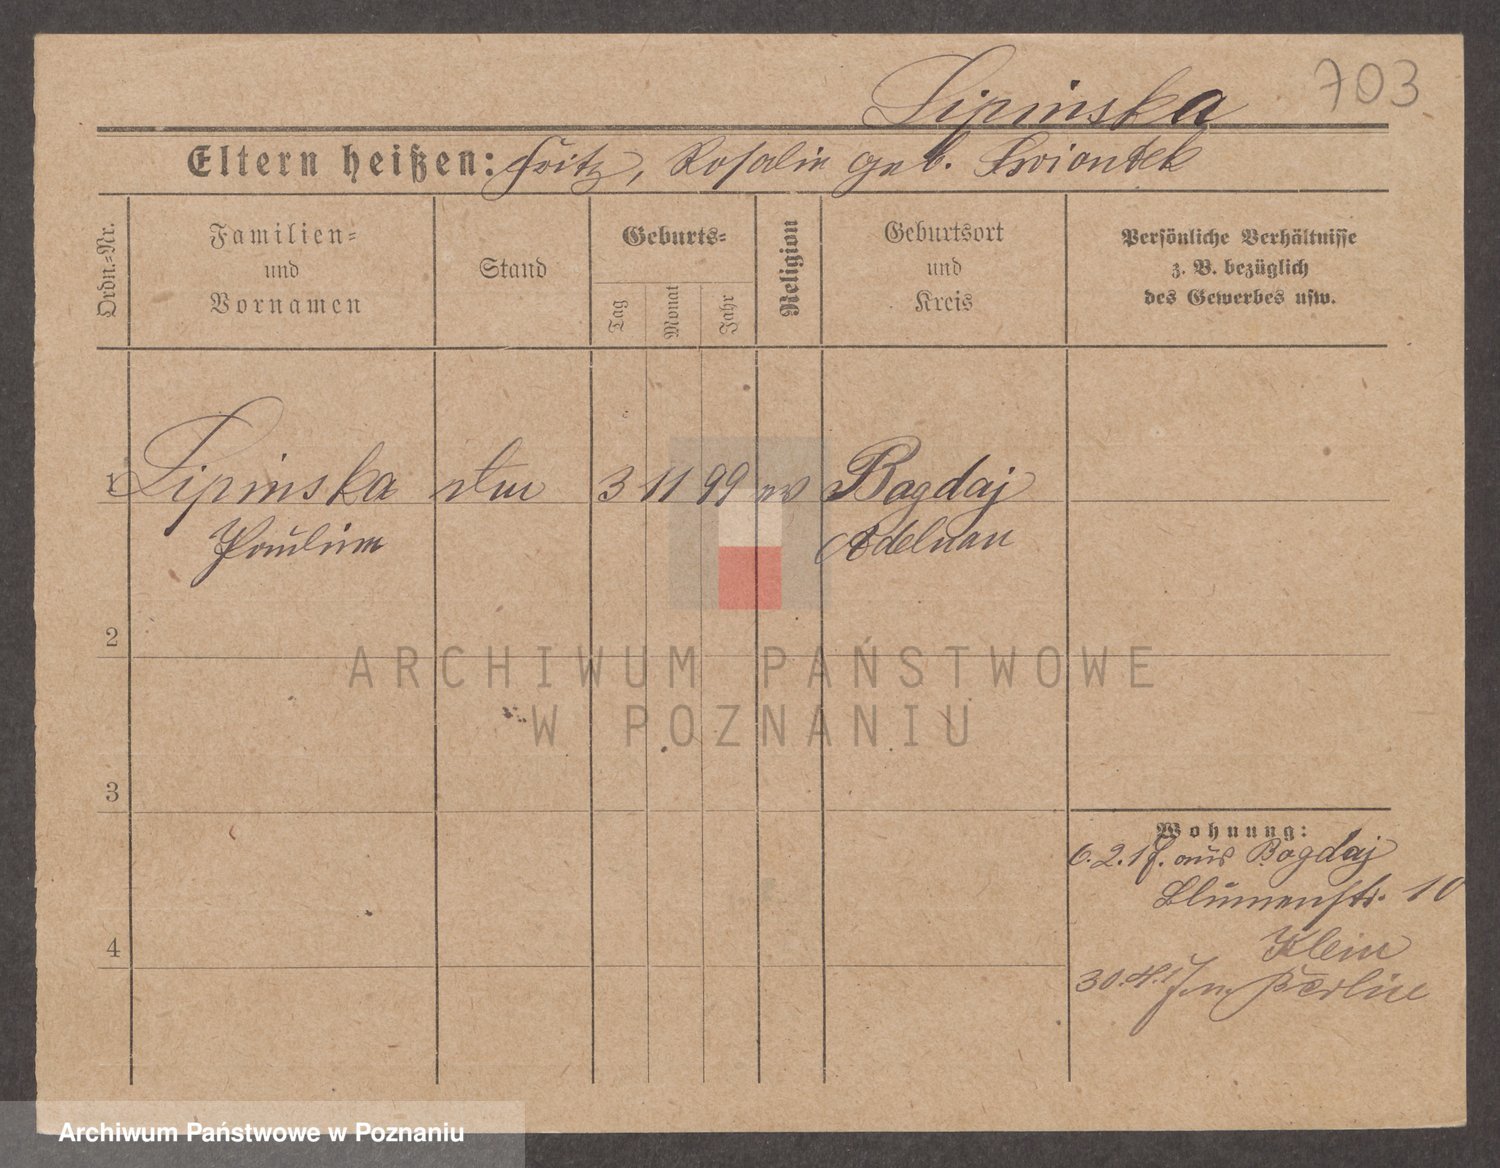 703
Lipinska
Eltern heißen: Fritz, Rosalie geb. Swiontek
Ordn.-Nr.
Familien-
und
Vornamen
Stand
Geburts-
Tag
Monat
Jahr
Religion
Geburtsort
und
Kreis
Persönliche Verhältnisse
z. B. bezüglich
des Gewerbes usw.
1 Lipinska 3 11 99 ev Bagdaj
Pauline Adelnau
2
3
4
Wohnung:
6.2.17. aus Bagdaj
Blumenstr. 10
Klein
30.4.17 Berlin
ARCHIWUM PAŃSTWOWE
W POZNANIU
Archiwum Państwowe w Poznaniu